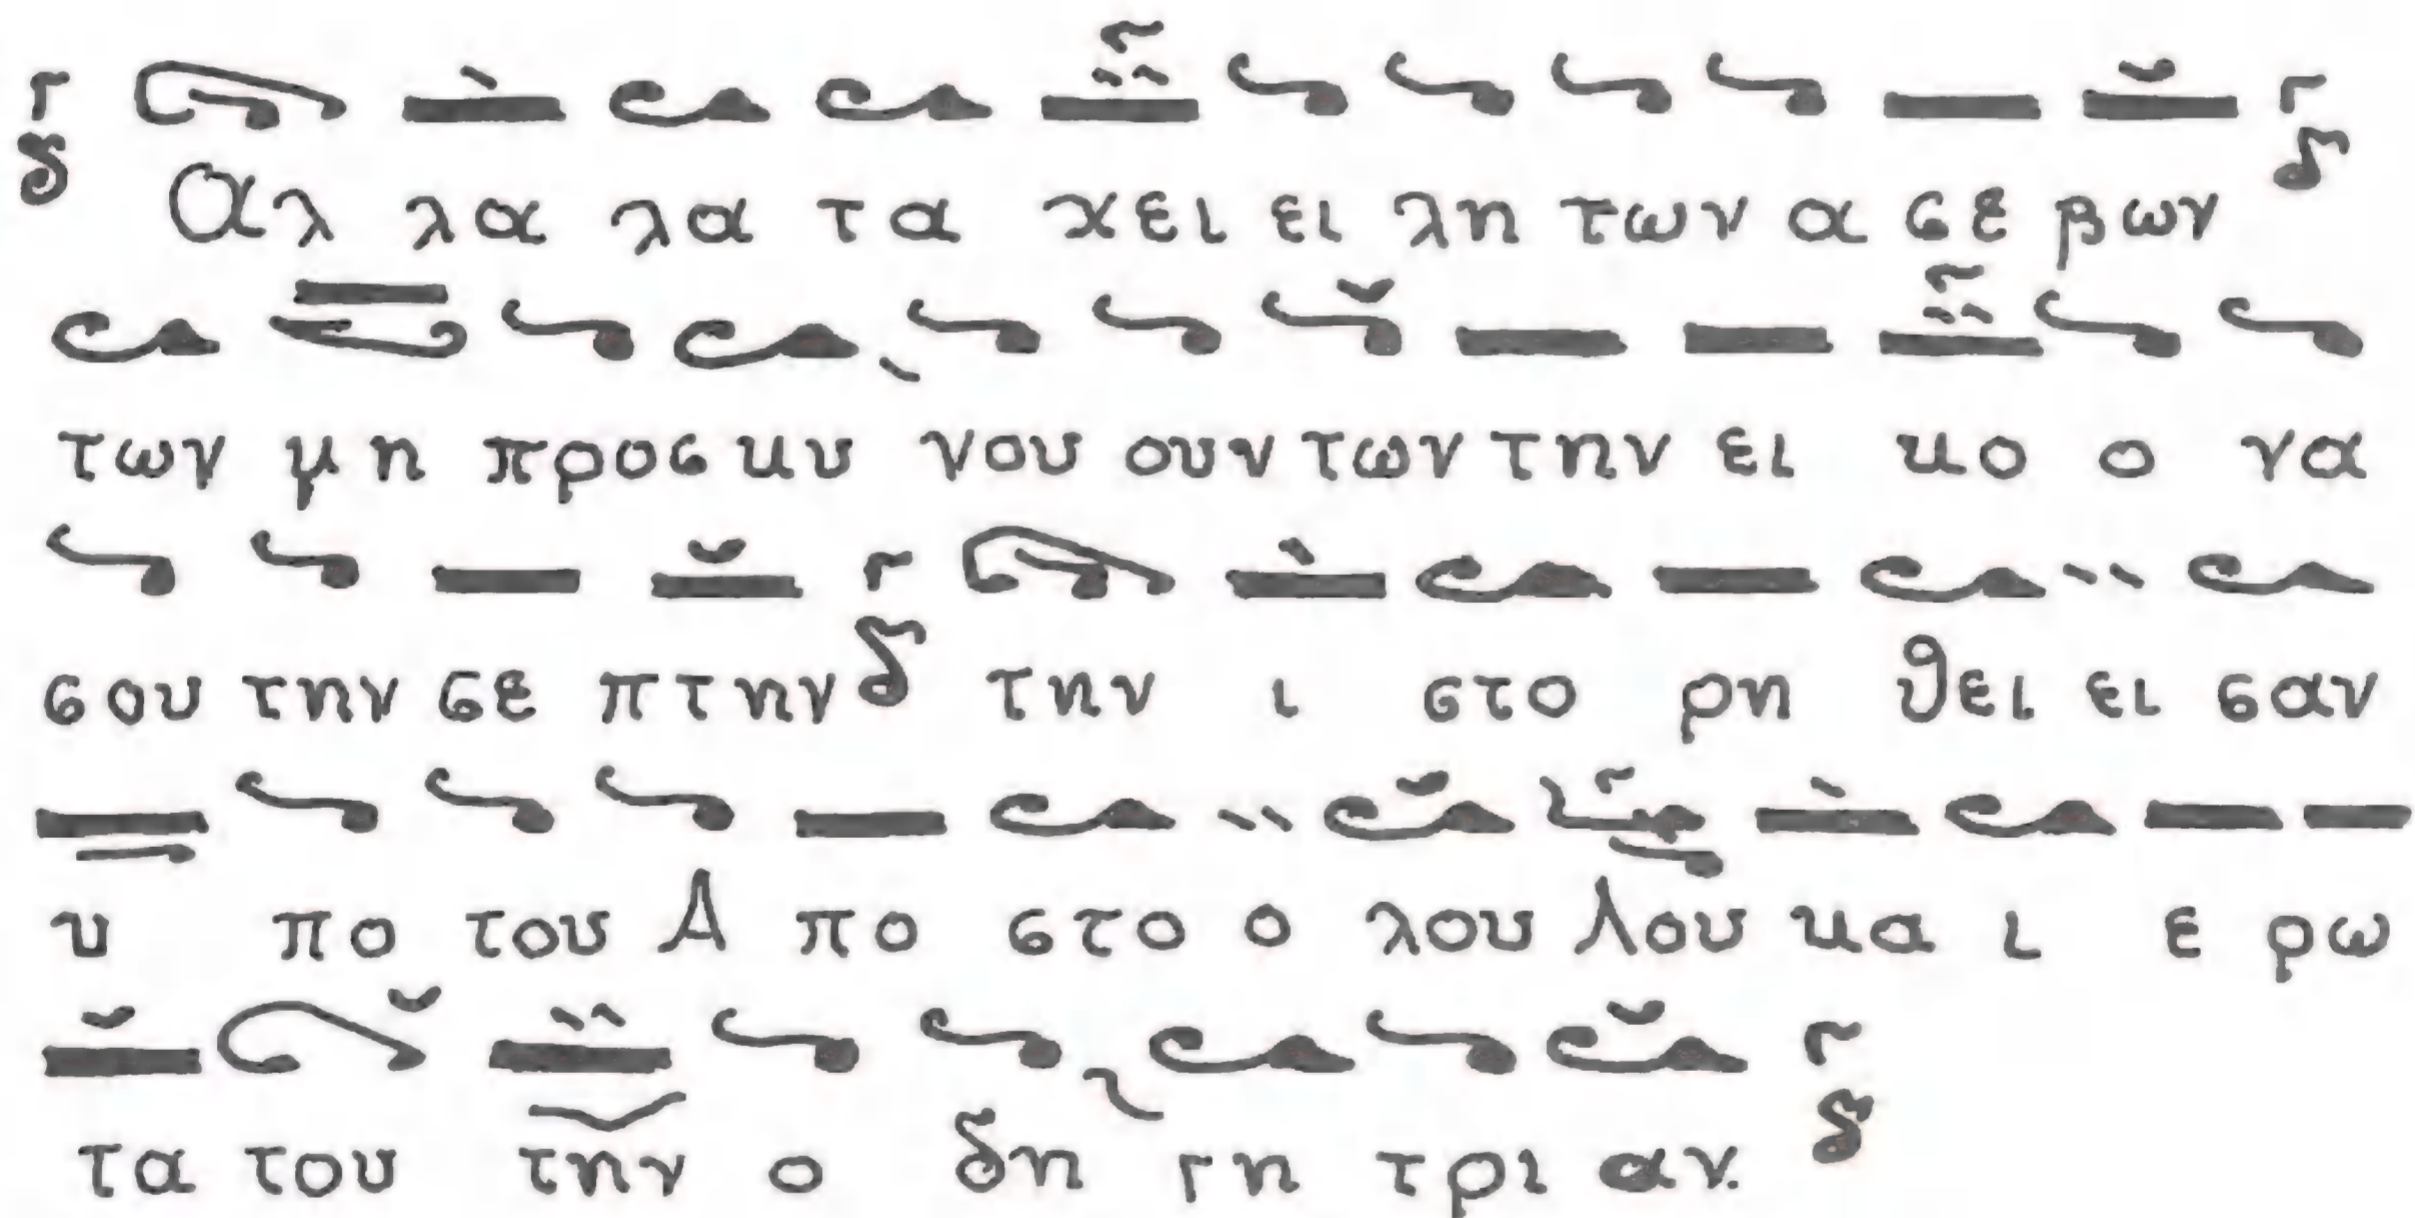 Αλ λα λα τα χει ει λη των α σε βων
των μη προσ κυ νου ουν των την ει κο ο να
σου την σε πτην την ι στο ρη θει ει σαν
υ πο του Α πο στο ο λου Λου κα ι ε ρω
τα του την ο δη γη τρι αν.